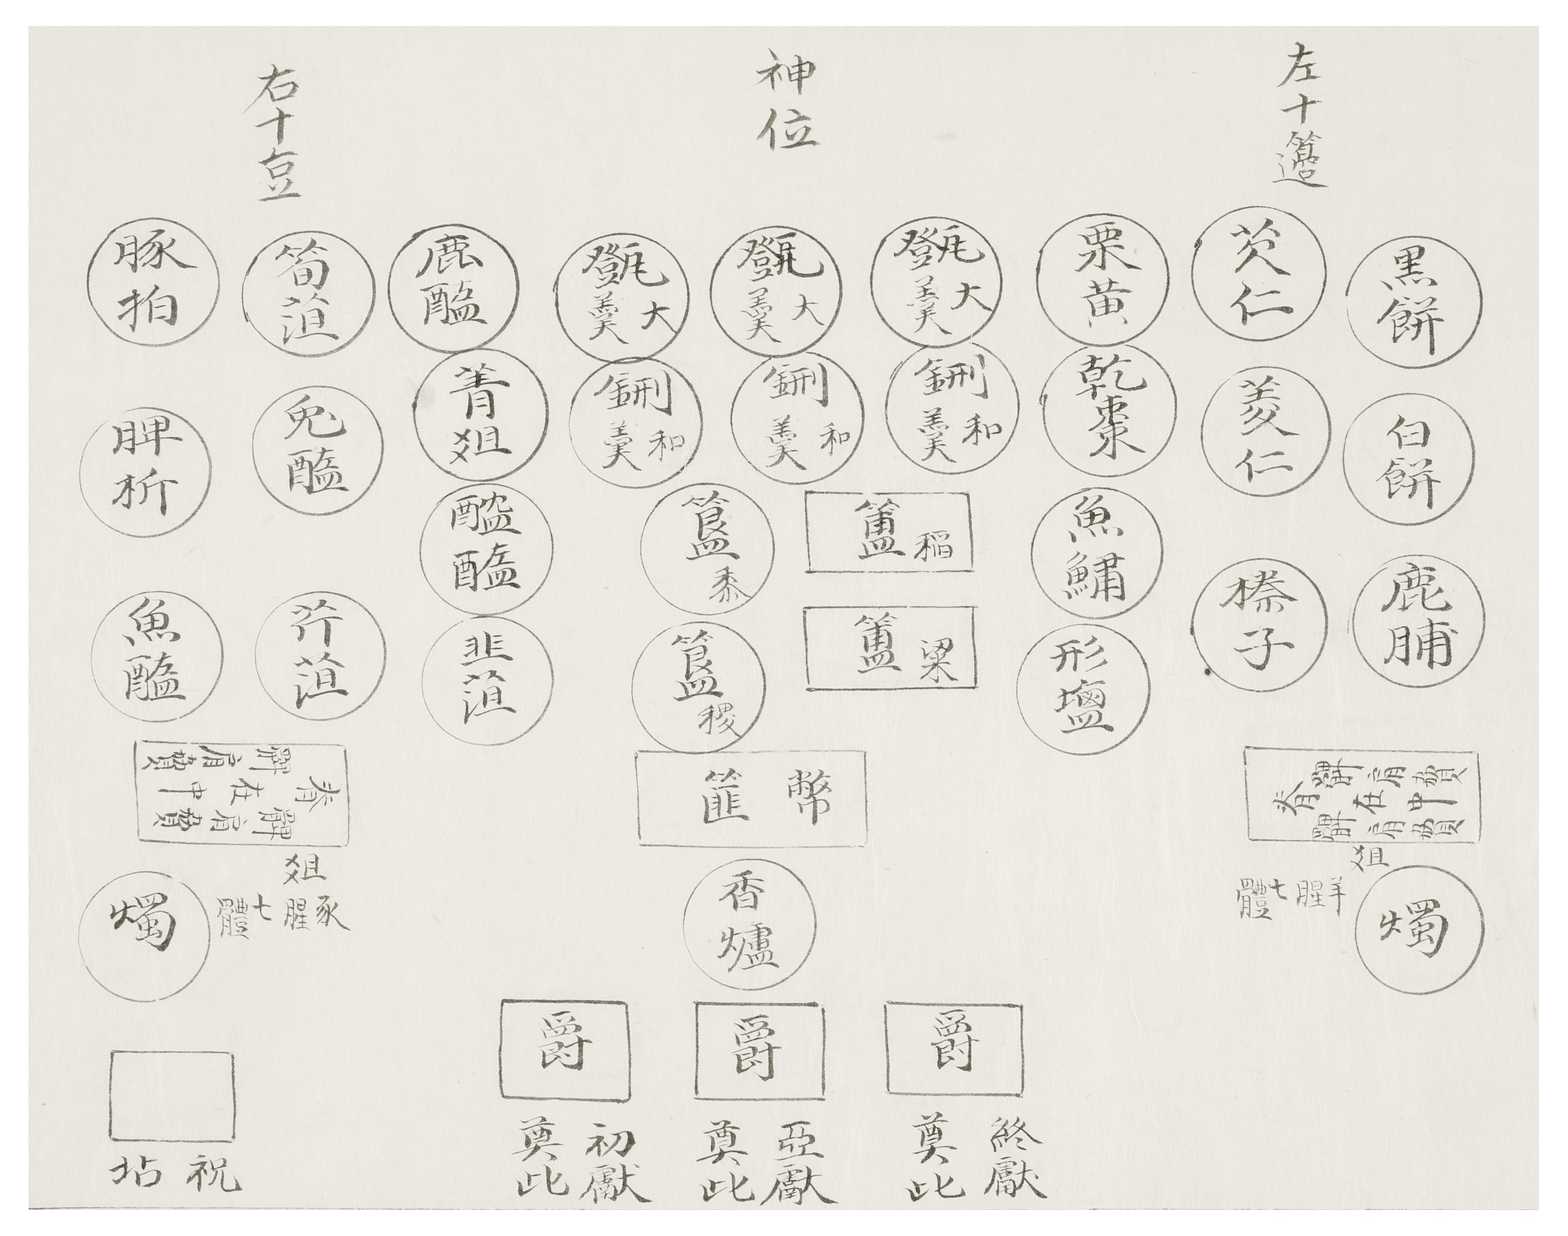 神位
左十籩
右十豆
黒餅
白餅
鹿脯
芡仁
菱仁
榛子
栗黄
乾棗
魚鱐
形塩
㽅大羹
㽅大羹
㽅大羹
鉶和羹
鉶和羹
鉶和羹
簠稻
簠梁
簋黍
簋稷
鹿醢
菁爼
醓醢
韭菹
筍菹
兎醢
芹菹
豚拍
脾析
魚醢
幣篚
脊在中
脊在中
爼
羊腥七體
爼
豕腥七體
燭
燭
香爐
爵
爵
爵
終獻奠此
亞獻奠此
初獻奠此
祝坫